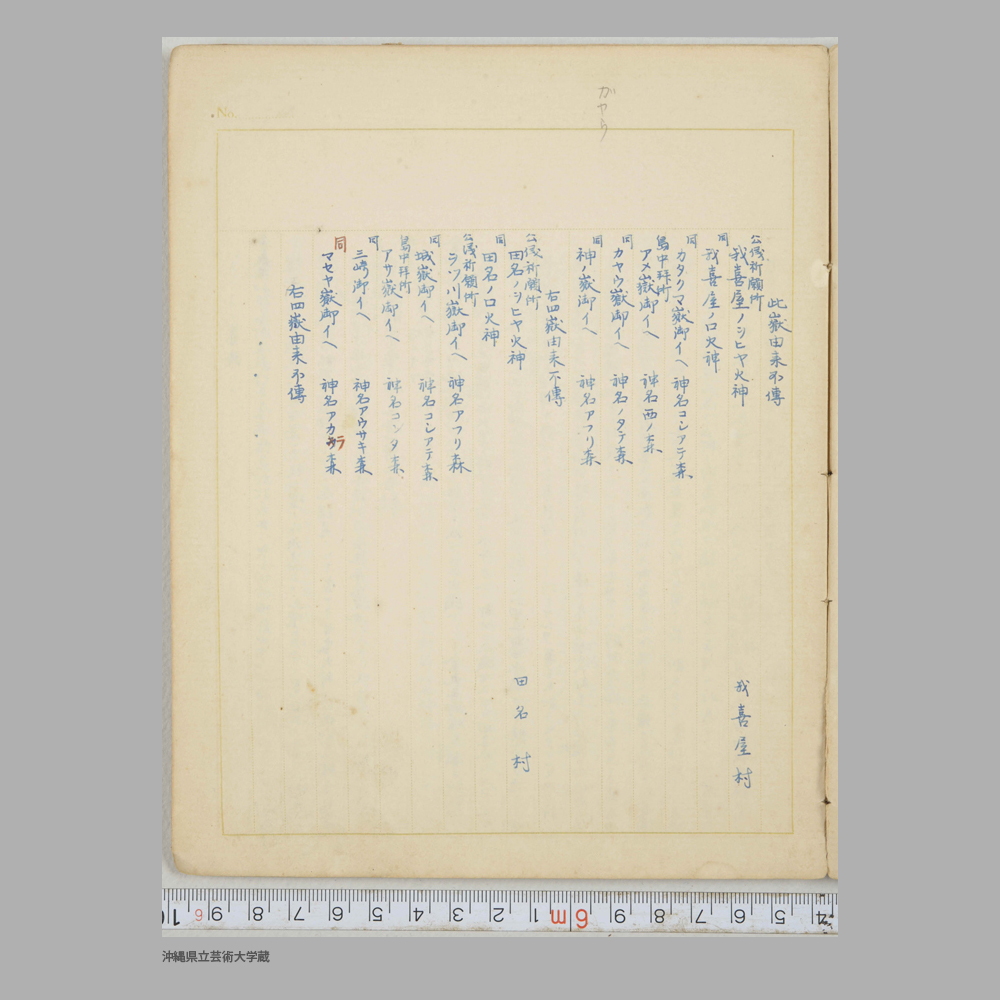 がやら
此嶽由来不傳
公儀祈願所
我喜屋ノシヒヤ火神
我喜屋村
同
我喜屋ノロ火神
同
カタクマ嶽御イヘ 神名コシアテ森
島中拜所
アメ嶽御イヘ 神名西ノ森
同
カヤウ嶽御イヘ 神名ノタテ森
同
神ノ嶽御イヘ 神名アフリ森
右四嶽由来不傳
公儀祈願所
田名ノシヒヤ火神
田名村
同
田名ノロ火神
公儀祈願所
ラツ川嶽御イヘ 神名アフリ森
同
城嶽御イヘ 神名コシアテ森
島中拜所
アサ嶽御イヘ 神名コンタ森
同
三崎御イヘ 神名アウサキ森
同
マセヤ嶽御イヘ 神名アカラ森
右四嶽由来不傳
No.
沖縄県立芸術大学蔵